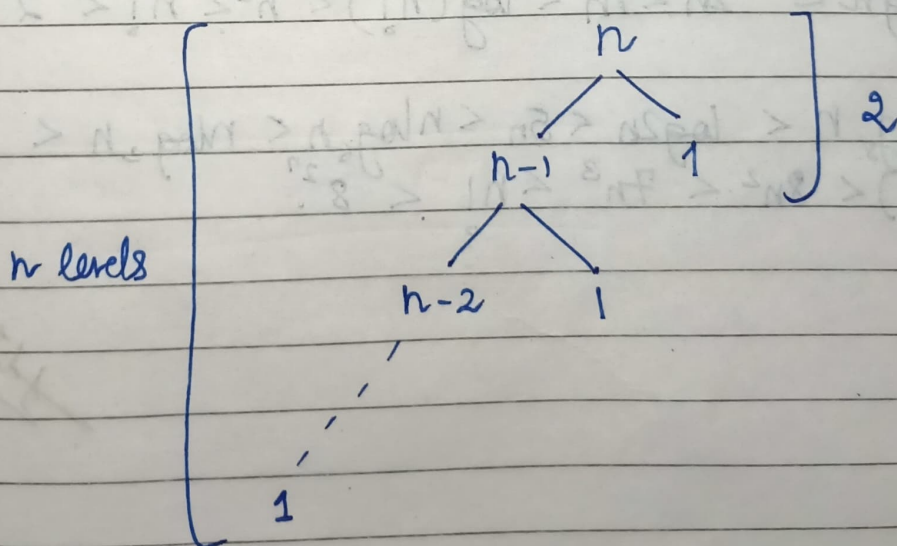 n
2
n-1 1
n levels
n-2 1
1